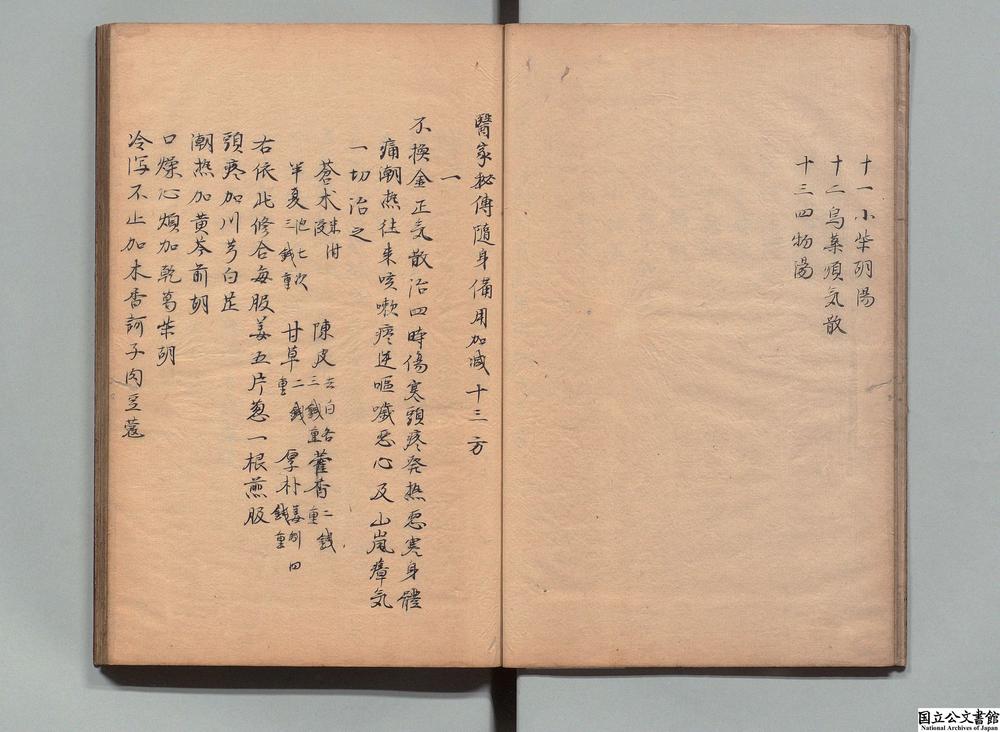 十一小柴胡湯
十二烏薬順気散
十三四物湯
醫家秘傳隨身備用加减十三方
一
不換金正気散治四時傷寒頭疼発热惡寒身體
痛潮热往来咳嗽痰逆嘔噦惡心及山嵐瘴気
一切治之
蒼术米泔浸 陳皮去白各三錢重 藿香二錢重
半夏泡七次三錢重 甘草二錢重 厚朴姜制四錢重
右依此修合每服姜五片葱一根煎服
頭疼加川芎白芷
潮热加黄芩前胡
口燥心煩加乾葛柴胡
冷瀉不止加木香訶子肉豆蔻
国立公文書館
National Archives of Japan